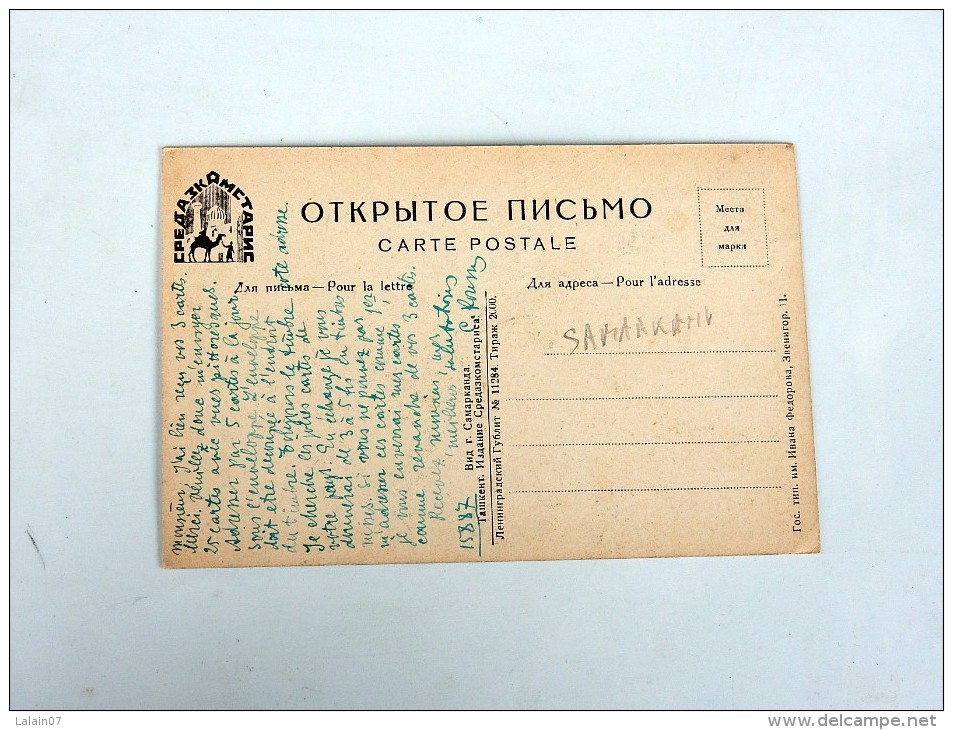 СРЕДАЗКОМСТАРИС
ОТКРЫТОЕ ПИСЬМО
CARTE POSTALE
Для письма — Pour la lettre
Для адреса — Pour l'adresse
Место
для
марки
monsieur, j'ai bien reçu vos 5 cartes,
Merci. veuillez donc m'envoyer
25 cartes avec vues pittoresques.
Adresser par 5 cartes à la fois
sous l'enveloppe. L'enveloppe
doit être donnée à l'endroit
du timbre. le timbre vote adresse.
Je cherche les jolies cartes de
votre pays. En échange je vous
donnerai de 3 à 5 frs en timbres
mines. Si vous ne pouvez pas
m'adresser ces cartes comme
je vous envoi mes cartes
comme revanche de vos 3 cartes.
Recevez monsieur mes
meilleurs salutations
15887
Вид г. Самарканда.
Ташкент. Издание Средазкомстариса.
Ленинградский Гублит № 11284. Тираж 2000.
SAMARKAND
Гос. тип. им. Ивана Федорова, Звенигор. 11.
Lalain07
delcampe.net